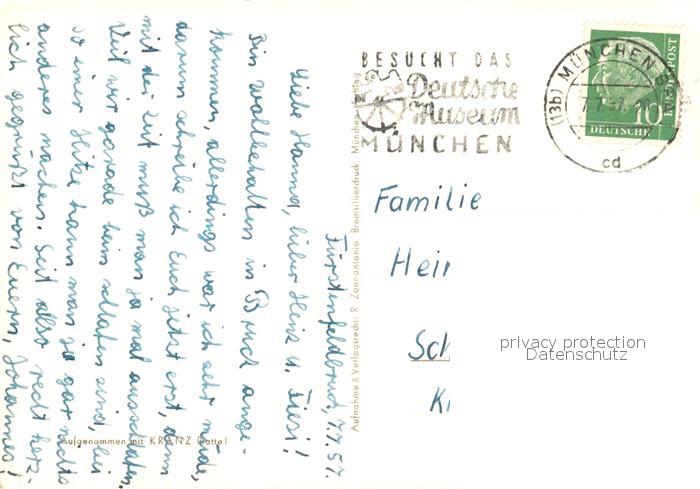 Fürstenfeldbruck, 7.7.57.
Liebe Hanna, lieber Heinz u. Fiesi!
Bin wollbehalten in Bruck ange-
kommen, allerdings war ich sehr müde,
darum schreibe ich Euch jetzt erst, denn
mit der Zeit muß man ja mal ausschlafen.
Weil wir gerade beim schlafen sind, bei
so einer Hitze kann man ja gar nichts
anderes machen. Seit also recht herz-
lich gegrüßt von Euern, Johannes!
Aufgenommen mit KRANZ Platte!
Aufnahme & Verlagsrecht: R. Zannantonio Bromsilberdruck München
BESUCHT DAS
Deutsche
Museum
MÜNCHEN
(13b) MÜNCHEN
cd
10
DEUTSCHE
BUNDESPOST
Familie
Hei
Sch
K
privacy protection
Datenschutz